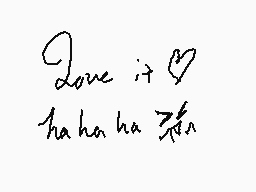 Love it ♡
ha ha ha